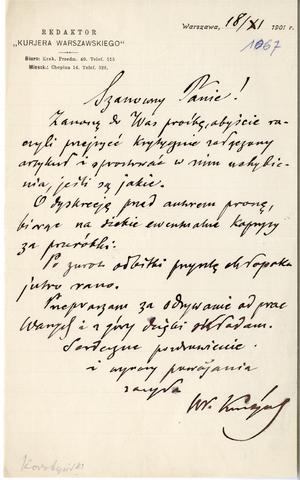 REDAKTOR
„KURJERA WARSZAWSKIEGO"
Biuro: Krak. Przedm. 40. Telef. 515
Mieszk.: Chopina 14. Telef. 528.
Warszawa, 18/XI 1901 r.
1067
Szanowny Panie!
Zanoszę do Was prośbę, abyście ra-
czyli przejrzeć krytycznie załączony
artykuł i sprostować w nim uchybie-
nia, jeśli są jakie.
O dyskrecję przed autorem proszę,
biorąc na siebie ewentualne kaprysy
za przeróbki.
Po zwrot odbitki przyślę chłopaka
jutro rano.
Przepraszam za odrywanie od prac
Waszych i z góry dzięki składam.
Serdeczne pozdrowienie
i wyrazy poważania
załącza